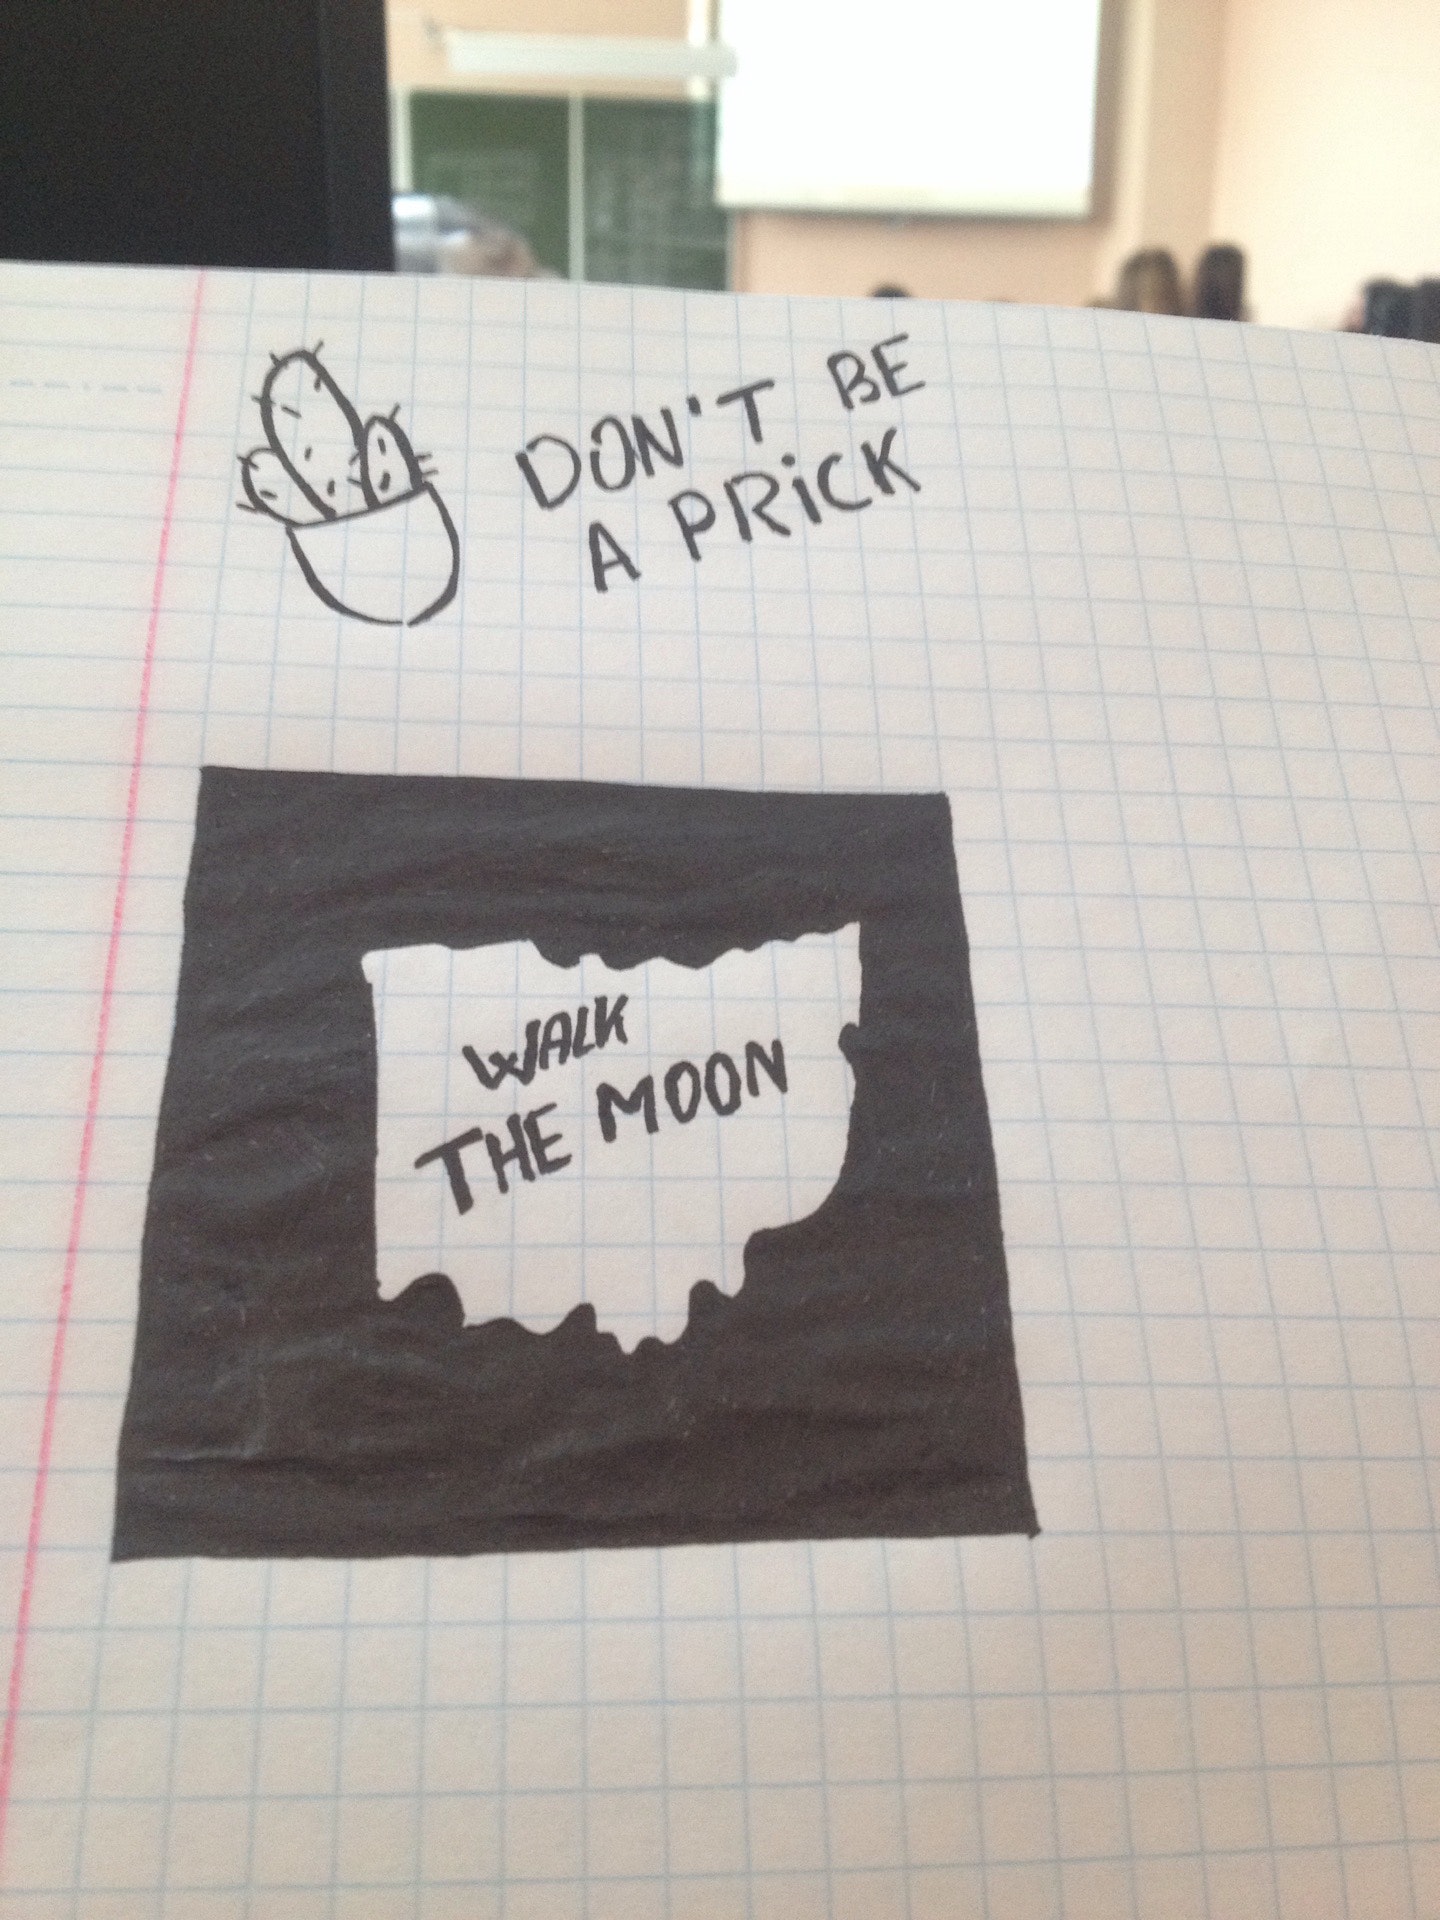 DON'T BE
A PRiCK
WALK
THE MOON